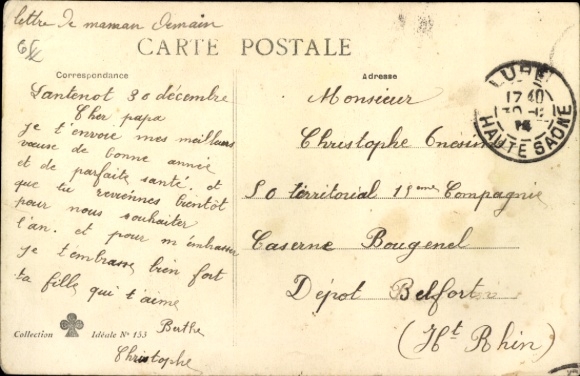 lettre de maman demain
CARTE POSTALE
Correspondance
Lantenot 30 décembre
Cher papa
je t'envoie mes meilleurs
vœuse de bonne année
et de parfaite santé. et
que tu reviennes bientôt
pour nous souhaiter
l'an. et pour m'embrasser
je t'embrasse bien fort
ta fille qui t'aime
Berthe
Christophe
Collection Idéale N° 155
Adresse
Monsieur
Christophe Onésime
50 térritorial 15eme Compagnie
Caserne Bougenel
Dépôt Belfort
(Ht Rhin)
LURE
17 40
30
14
HAUTE SAONE